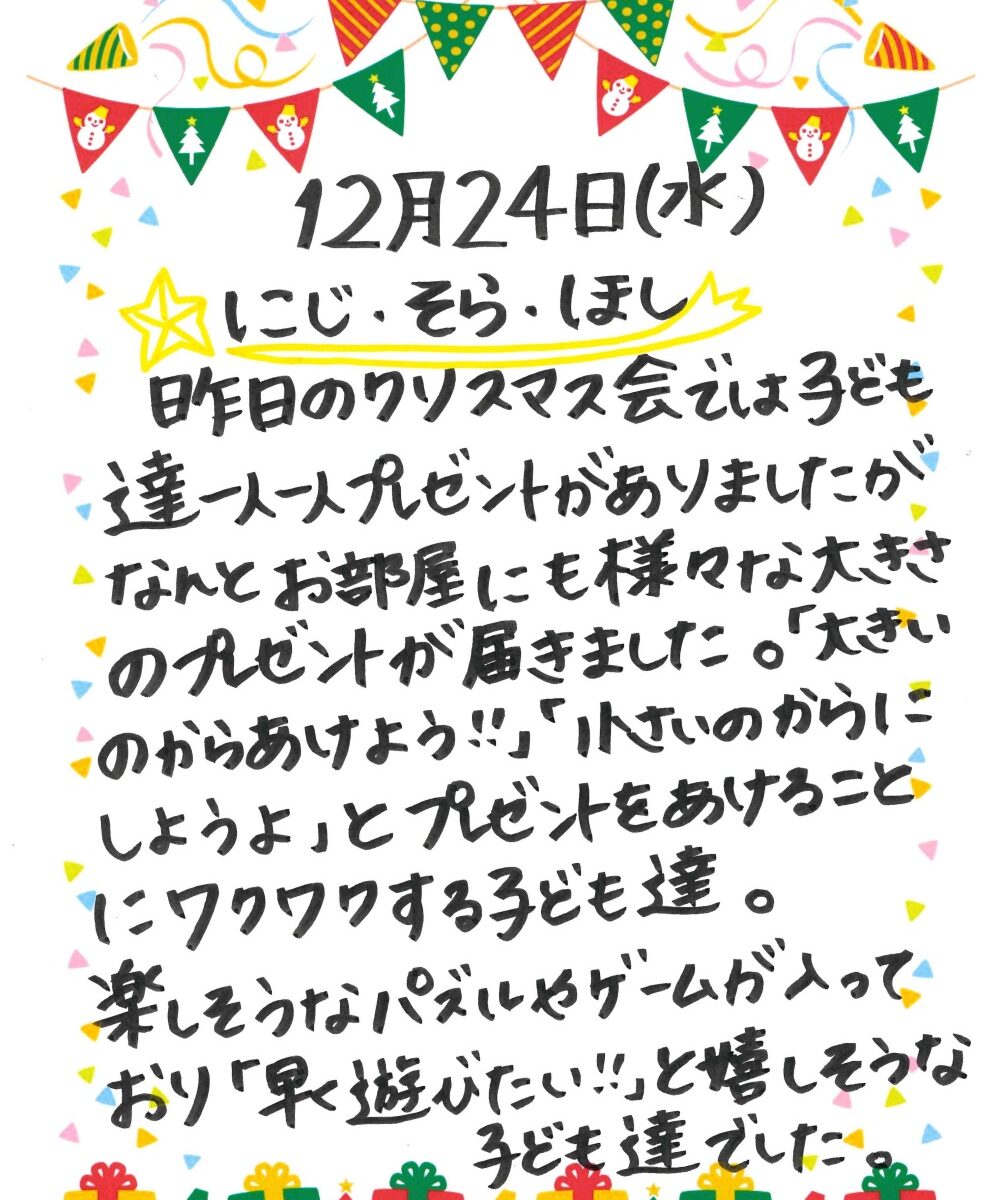 12月24日(水)
にじ・そら・ほし
昨日のクリスマス会では子ども
達一人一人プレゼントがありましたが
なんとお部屋にも様々な大きさ
のプレゼントが届きました。「大きい
のからあけよう!!」「小さいのからに
しようよ」とプレゼントをあけること
にワクワクする子ども達。
楽しそうなパズルやゲームが入って
おり「早く遊びたい!!」と嬉しそうな
子ども達でした。